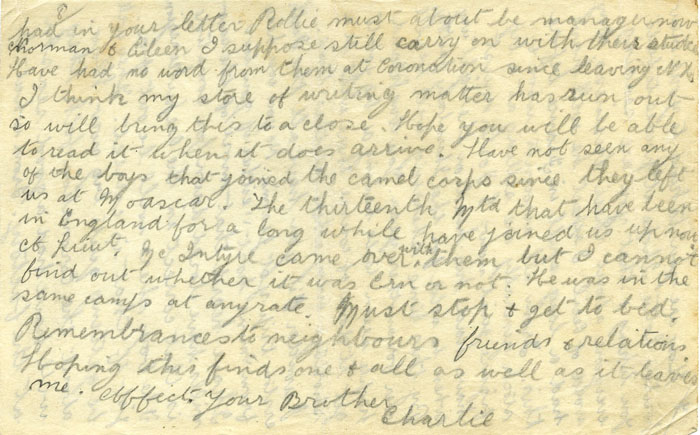 had in your letter Rollie must about be manager now
Norman & Eileen I suppose still carry on with their studies
Have had no word from them at Coronation since leaving N.Z.
I think my store of writing matter has run out
so will bring this to a close. Hope you will be able
to read it when it does arrive. Have not seen any
of the boys that joined the camel corps since they left
us at Moascar. The thirteenth Mtd that have been
in England for a long while have joined us up now
a Lieut. Mc Intyre came over with them but I cannot
find out whether it was Ern or not. He was in the
same camps at anyrate. Must stop & get to bed.
Remembrances to neighbours friends & relations.
Hoping this finds one & all as well as it leaves
me. Affect. Your Brother
Charlie